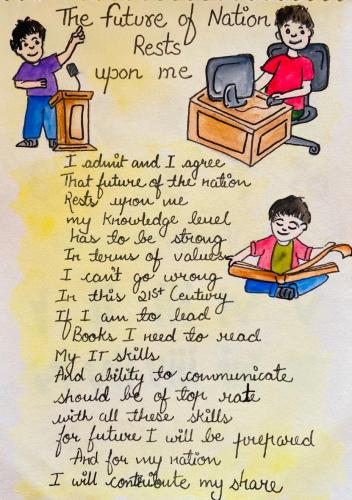 The future of Nation
Rests
upon me
I admit and I agree
That future of the nation
Rests upon me
my knowledge level
has to be strong
In terms of values
I can't go wrong
In this 21st Century
If I am to lead
Books I need to read
My IT skills
And ability to communicate
should be of top rate
with all these skills
for future I will be prepared
And for my nation
I will contribute my share